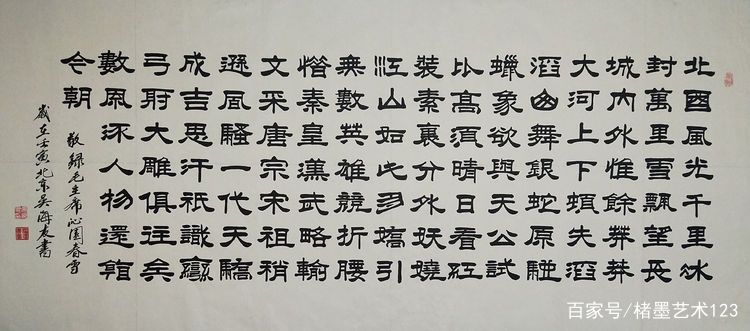 北國風光千里冰
封萬里雪飄望長
城内外惟餘莽莽
大河上下頓失滔
滔山舞銀蛇原馳
蠟象欲與天公試
比高須晴日看紅
裝素裹分外妖嬈
江山如此多嬌引
無數英雄競折腰
惜秦皇漢武略輸
文采唐宗宋祖稍
遜風騷一代天驕
成吉思汗祇識彎
弓射大雕俱往矣
數風流人物還看
今朝
敬録毛主席沁園春雪
歲在壬寅北京吴海友書
百家号/楮墨艺术123